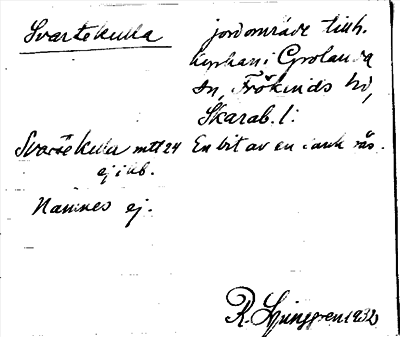 Svartekulla jordområde tillh.
kyrkan i Grolanda
sn, Frökinds hd,
Skarab. l:
Svartekulla mtt 24 En bit av en sank
ej i ub.
Namnes ej.
R. Ljunggren 1932